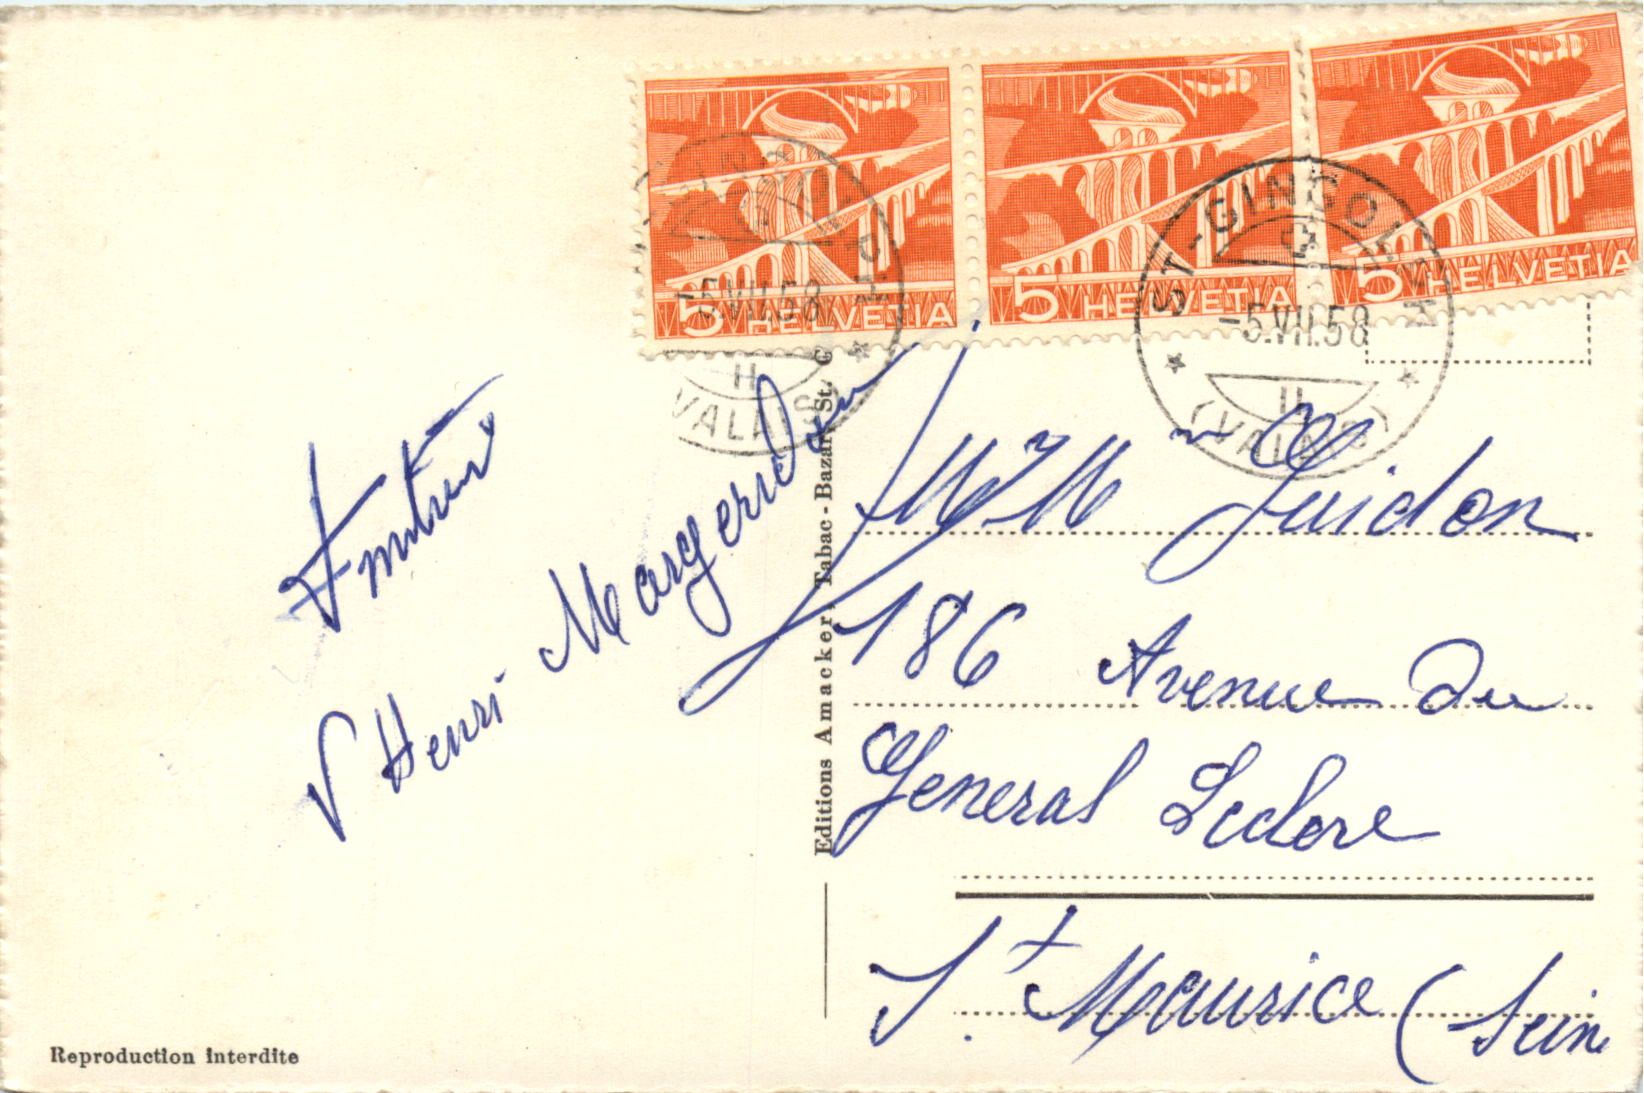 5 HELVETIA
5 HELVETIA
5 HELVETIA
ST-GINGOLPH
-5.VII.58
II
(VALAIS)
ST-GINGOLPH
-5.VII.58
II
(VALAIS)
Henri Marguerid
Editions Amacker, Tabac-Bazar, St. G
Mr M Guidon
186 Avenue Du
General Leclerc
St Maurice (Sein
Reproduction interdite